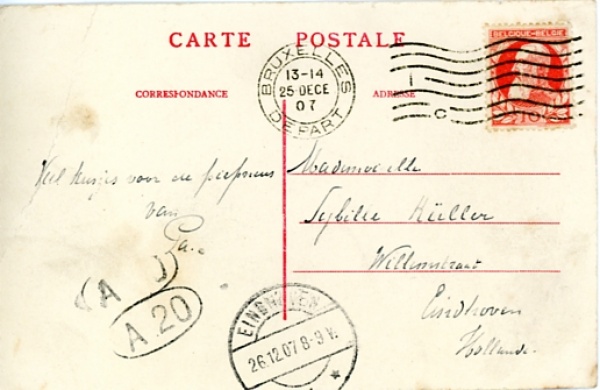 CARTE POSTALE
CORRESPONDANCE
ADRESSE
BRUXELLES
13-14
25 DECE
07
DEPART
BELGIQUE-BELGIE
10
Mademoiselle
Sybille Müller
Willemstraat
Eindhoven
Hollande.
Veel kusjes voor de piepmuis
van
Pa.
A
A.20
EINDHOVEN
26.12.07 8-9 V.